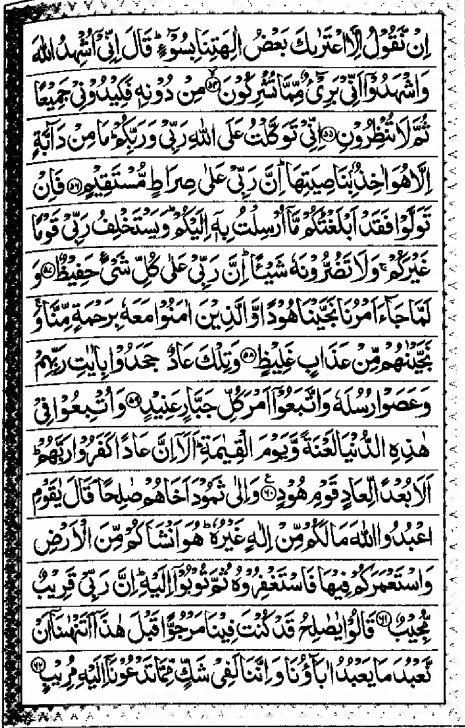 اِنۡ نَّقُوۡلُ اِلَّا اعۡتَرٰىكَ بَعۡضُ اٰلِهَتِنَا بِسُوۡٓءٍ ؕ قَالَ اِنِّىۡۤ اُشۡهِدُ اللّٰهَ
وَاشۡهَدُوۡۤا اَنِّىۡ بَرِىۡٓءٌ مِّمَّا تُشۡرِكُوۡنَ ۙ﴿۵۴﴾ مِنۡ دُوۡنِهٖ فَكِيۡدُوۡنِىۡ جَمِيۡعًا
ثُمَّ لَا تُنۡظِرُوۡنِ ﴿۵۵﴾ اِنِّىۡ تَوَكَّلۡتُ عَلَى اللّٰهِ رَبِّىۡ وَرَبِّكُمۡ ؕ مَا مِنۡ دَآبَّةٍ
اِلَّا هُوَ اٰخِذٌۢ بِنَاصِيَتِهَا ؕ اِنَّ رَبِّىۡ عَلٰى صِرَاطٍ مُّسۡتَقِيۡمٍ ﴿۵۶﴾ فَاِنۡ
تَوَلَّوۡا فَقَدۡ اَبۡلَغۡتُكُمۡ مَّاۤ اُرۡسِلۡتُ بِهٖۤ اِلَيۡكُمۡ ؕ وَيَسۡتَخۡلِفُ رَبِّىۡ قَوۡمًا
غَيۡرَكُمۡ ۚ وَلَا تَضُرُّوۡنَهٗ شَيۡئًا ؕ اِنَّ رَبِّىۡ عَلٰى كُلِّ شَىۡءٍ حَفِيۡظٌ ﴿۵۷﴾ وَ
لَمَّا جَآءَ اَمۡرُنَا نَجَّيۡنَا هُوۡدًا وَّالَّذِيۡنَ اٰمَنُوۡا مَعَهٗ بِرَحۡمَةٍ مِّنَّا ۚ وَ
نَجَّيۡنٰهُمۡ مِّنۡ عَذَابٍ غَلِيۡظٍ ﴿۵۸﴾ وَتِلۡكَ عَادٌ ۙ جَحَدُوۡا بِاٰيٰتِ رَبِّهِمۡ
وَعَصَوۡا رُسُلَهٗ وَاتَّبَعُوۡۤا اَمۡرَ كُلِّ جَبَّارٍ عَنِيۡدٍ ﴿۵۹﴾ وَاُتۡبِعُوۡا فِىۡ
هٰذِهِ الدُّنۡيَا لَعۡنَةً وَّيَوۡمَ الۡقِيٰمَةِ ؕ اَلَاۤ اِنَّ عَادًا كَفَرُوۡا رَبَّهُمۡ ؕ
اَلَا بُعۡدًا لِّعَادٍ قَوۡمِ هُوۡدٍ ﴿۶۰﴾ وَاِلٰى ثَمُوۡدَ اَخَاهُمۡ صٰلِحًا ۘ قَالَ يٰقَوۡمِ
اعۡبُدُوا اللّٰهَ مَا لَكُمۡ مِّنۡ اِلٰهٍ غَيۡرُهٗ ؕ هُوَ اَنۡشَاَكُمۡ مِّنَ الۡاَرۡضِ
وَاسۡتَعۡمَرَكُمۡ فِيۡهَا فَاسۡتَغۡفِرُوۡهُ ثُمَّ تُوۡبُوۡۤا اِلَيۡهِ ؕ اِنَّ رَبِّىۡ قَرِيۡبٌ
مُّجِيۡبٌ ﴿۶۱﴾ قَالُوۡا يٰصٰلِحُ قَدۡ كُنۡتَ فِيۡنَا مَرۡجُوًّا قَبۡلَ هٰذَاۤ اَتَنۡهٰٮنَاۤ اَنۡ
نَّعۡبُدَ مَا يَعۡبُدُ اٰبَآؤُنَا وَاِنَّنَا لَفِىۡ شَكٍّ مِّمَّا تَدۡعُوۡنَاۤ اِلَيۡهِ مُرِيۡبٍ ﴿۶۲﴾